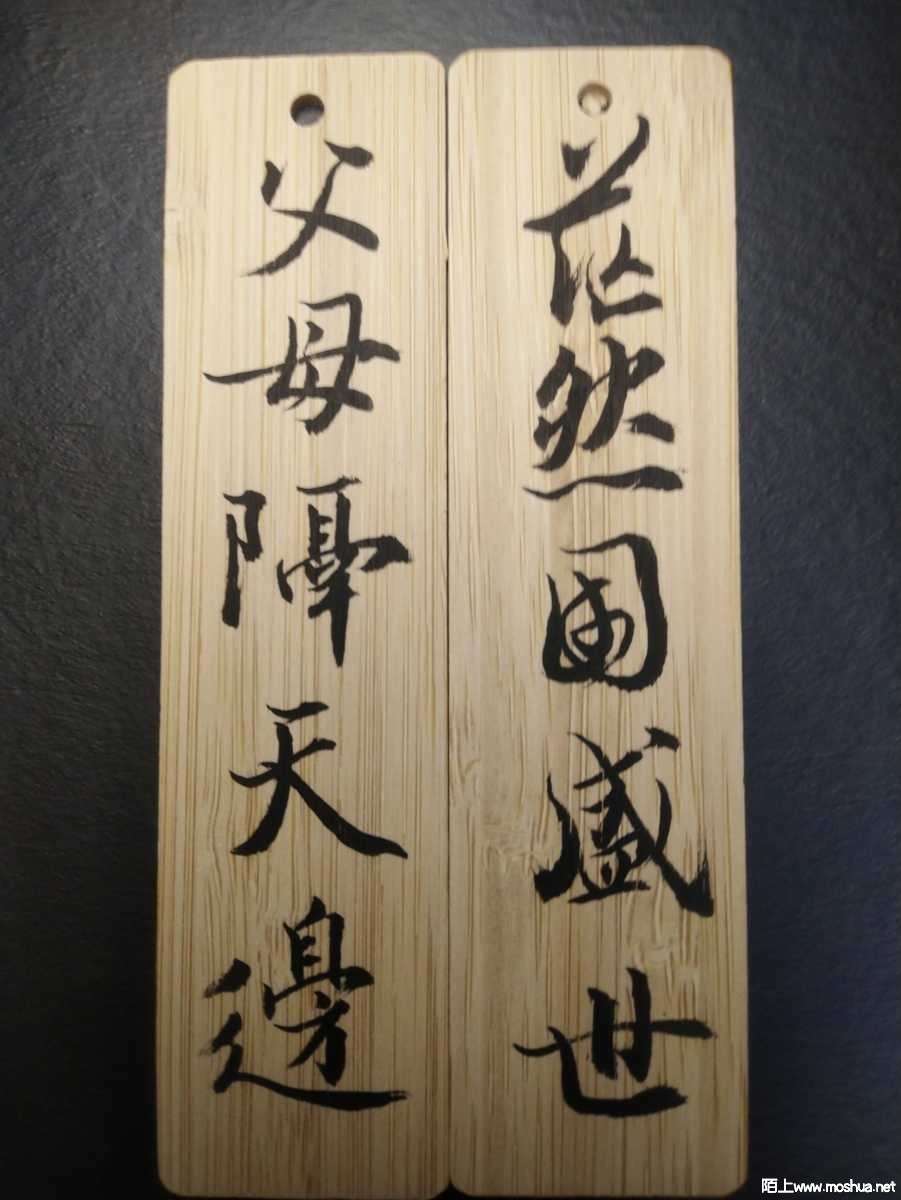 茫然国盛世
父母隔天邊
陌上www.moshua.net